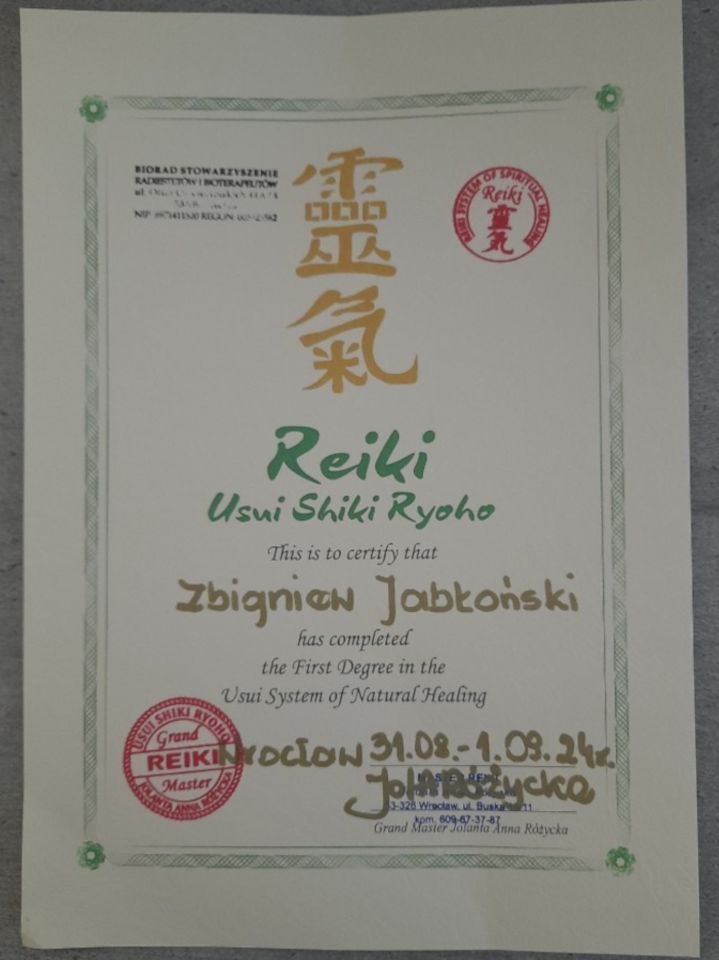 BIORAD STOWARZYSZENIE
RADIESTETÓW I BIOTERAPEUTÓW
ul.
NIP REGON:
靈氣
REIKI SYSTEM OF SPIRITUAL HEALING
Reiki
靈氣
Reiki
Usui Shiki Ryoho
This is to certify that
Zbigniew Jabłoński
has completed
the First Degree in the
Usui System of Natural Healing
USUI SHIKI RYOHO
Grand
REIKI
Master
JOLANTA ANNA RÓŻYCKA
Wrocław 31.08.-1.09.24r.
Jol. Różycka
53-326 Wrocław, ul. Buska
kom. 609-67-37-87
Grand Master Jolanta Anna Różycka